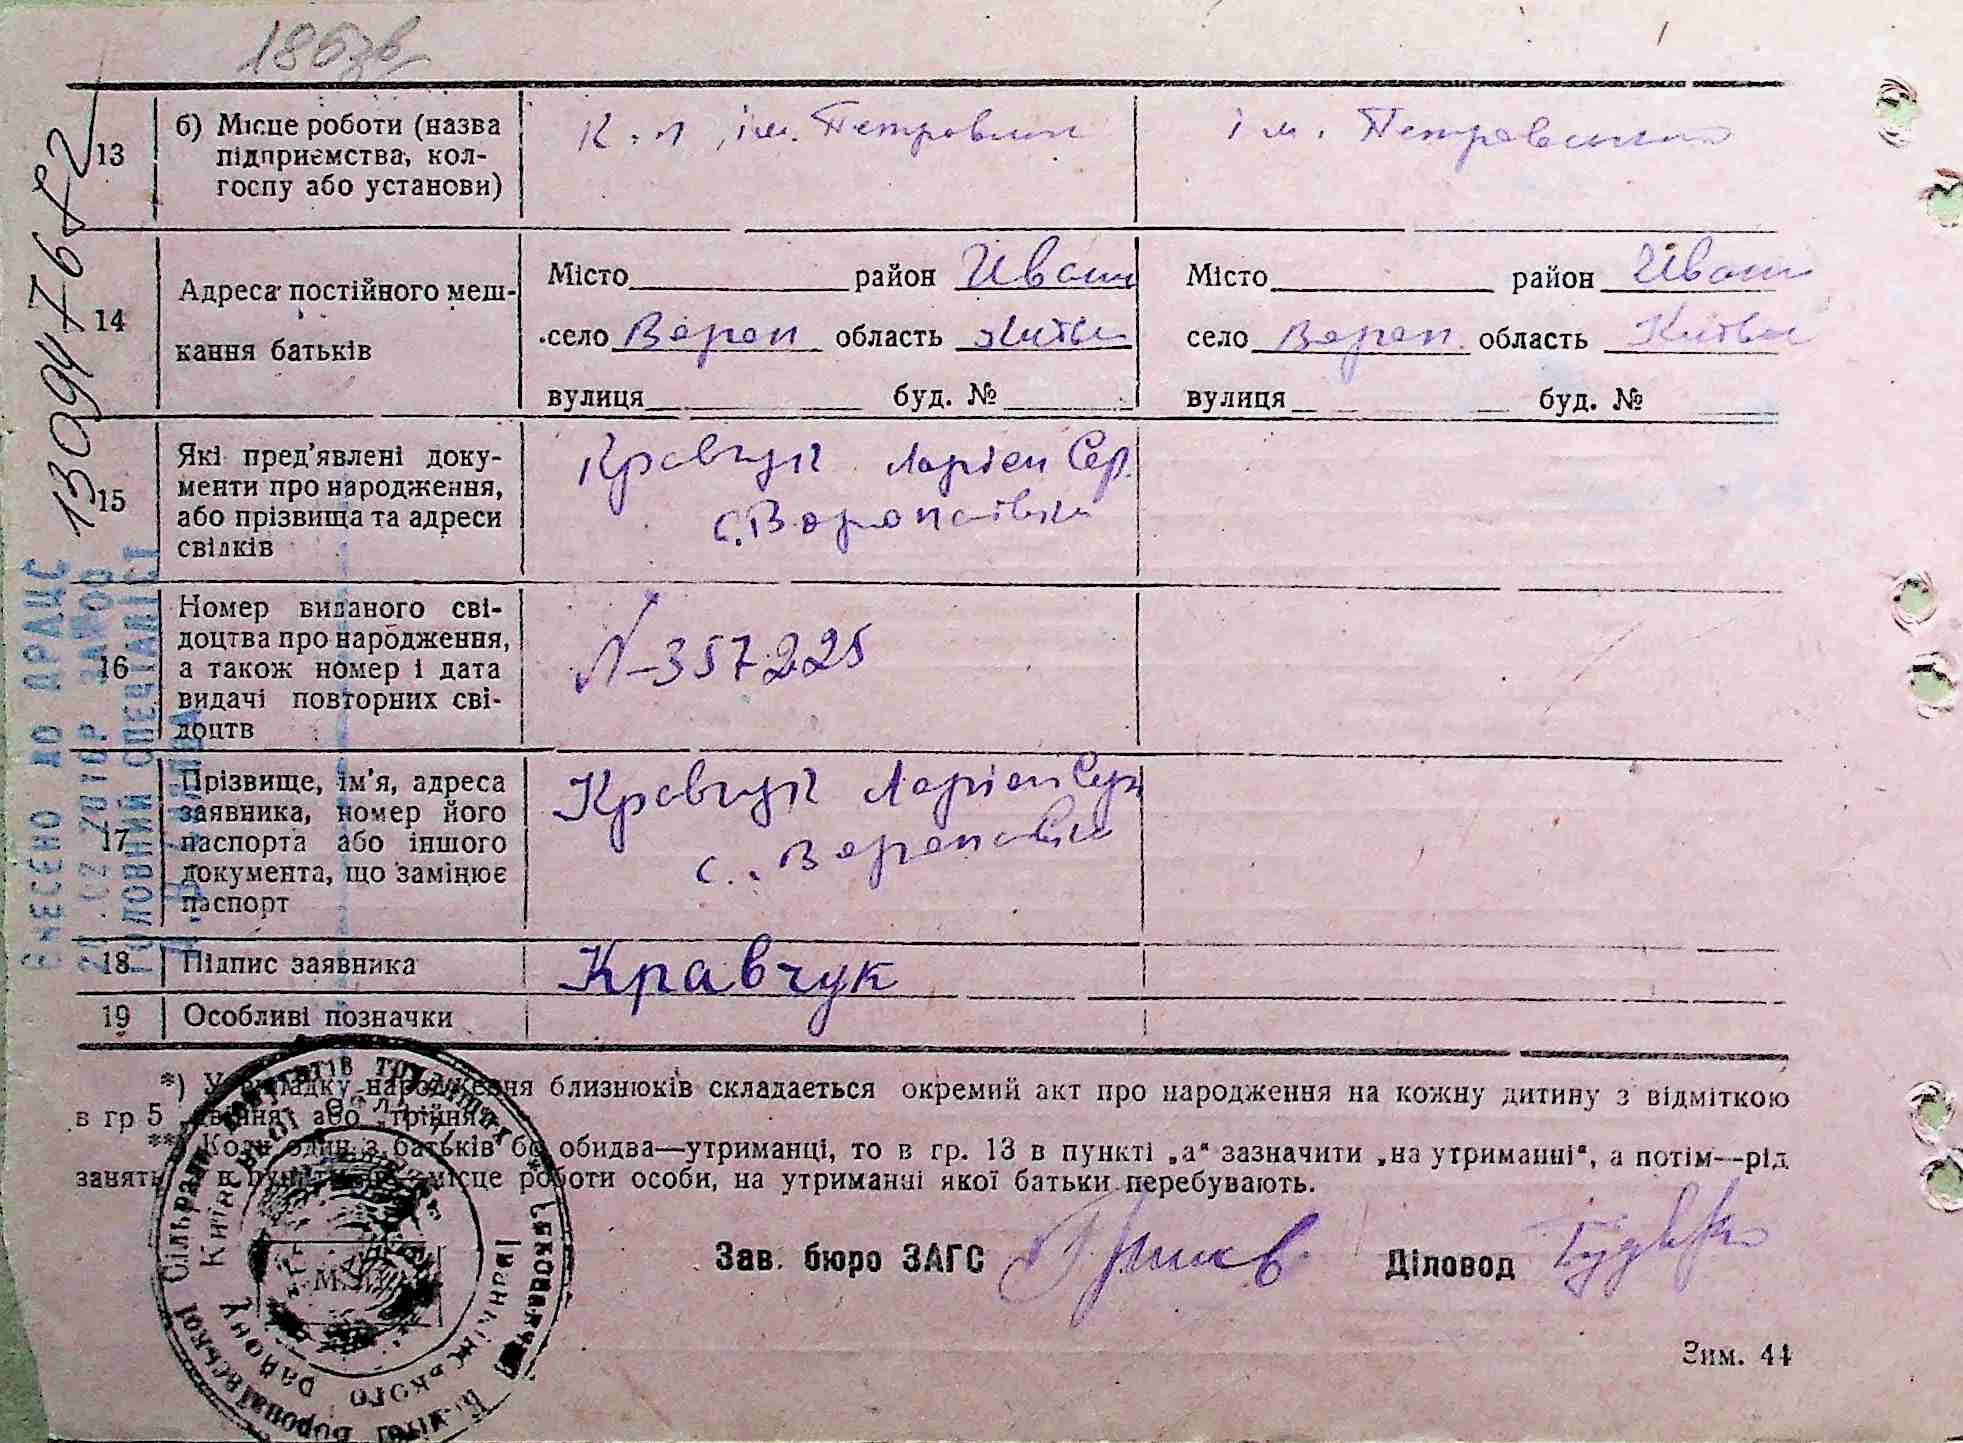 186зв
13094768
13 б) Місце роботи (назва підприємства, колгоспу або установи) К-п, ім. Петровськ ім. Петровськ
14 Адреса постійного мешкання батьків
Місто район Іван Місто район Іван
село Вороп область Київ село Вороп. область Київ
вулиця буд. № вулиця буд. №
15 Які пред'явлені доку-
менти про народження,
або прізвища та адреси
свідків
Кравчук Ларіон Сер.
с. Воропаївка
16 Номер виданого сві-
доцтва про народження,
а також номер і дата
видачі повторних сві-
доцтв
N-357225
17 Прізвище, ім'я, адреса
заявника, номер його
паспорта або іншого
документа, що замінює
паспорт
Кравчук Ларіон Сер
с. Воропаївка
18 Підпис заявника Кравчук
19 Особливі позначки
*) У випадку народження близнюків складається окремий акт про народження на кожну дитину з відміткою
в гр 5 „двійня“ або „трійня“.
**) Коли один з батьків або обидва—утриманці, то в гр. 13 в пункті „а“ зазначити „на утриманні“, а потім—рід
занять, в пункті місце роботи особи, на утриманні якої батьки перебувають.
Зав. бюро ЗАГС Діловод
Зим. 44
Внесено до ДРАЦС
21.02.2011р
головний спеціаліст
М.П.
Воропаївської сільради депутатів трудящих
Іванківського району Київської області